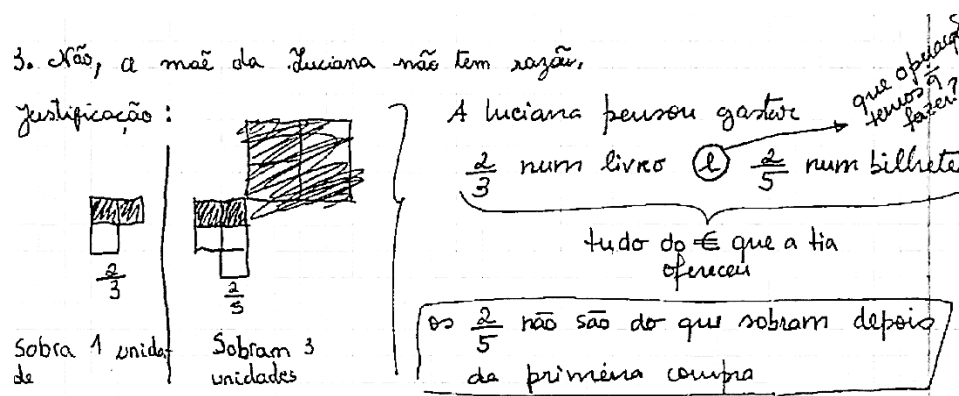 3. Não, a mãe da Luciana não tem razão.
Justificação:
2/3
Sobra 1 unida-
de
2/5
Sobram 3
unidades
A Luciana pensou gastar
2/3 num livro e 2/5 num bilhete
que operação
temos q̃
fazer?
tudo do € que a tia
ofereceu
os 2/5 não são do que sobram depois
da primeira compra